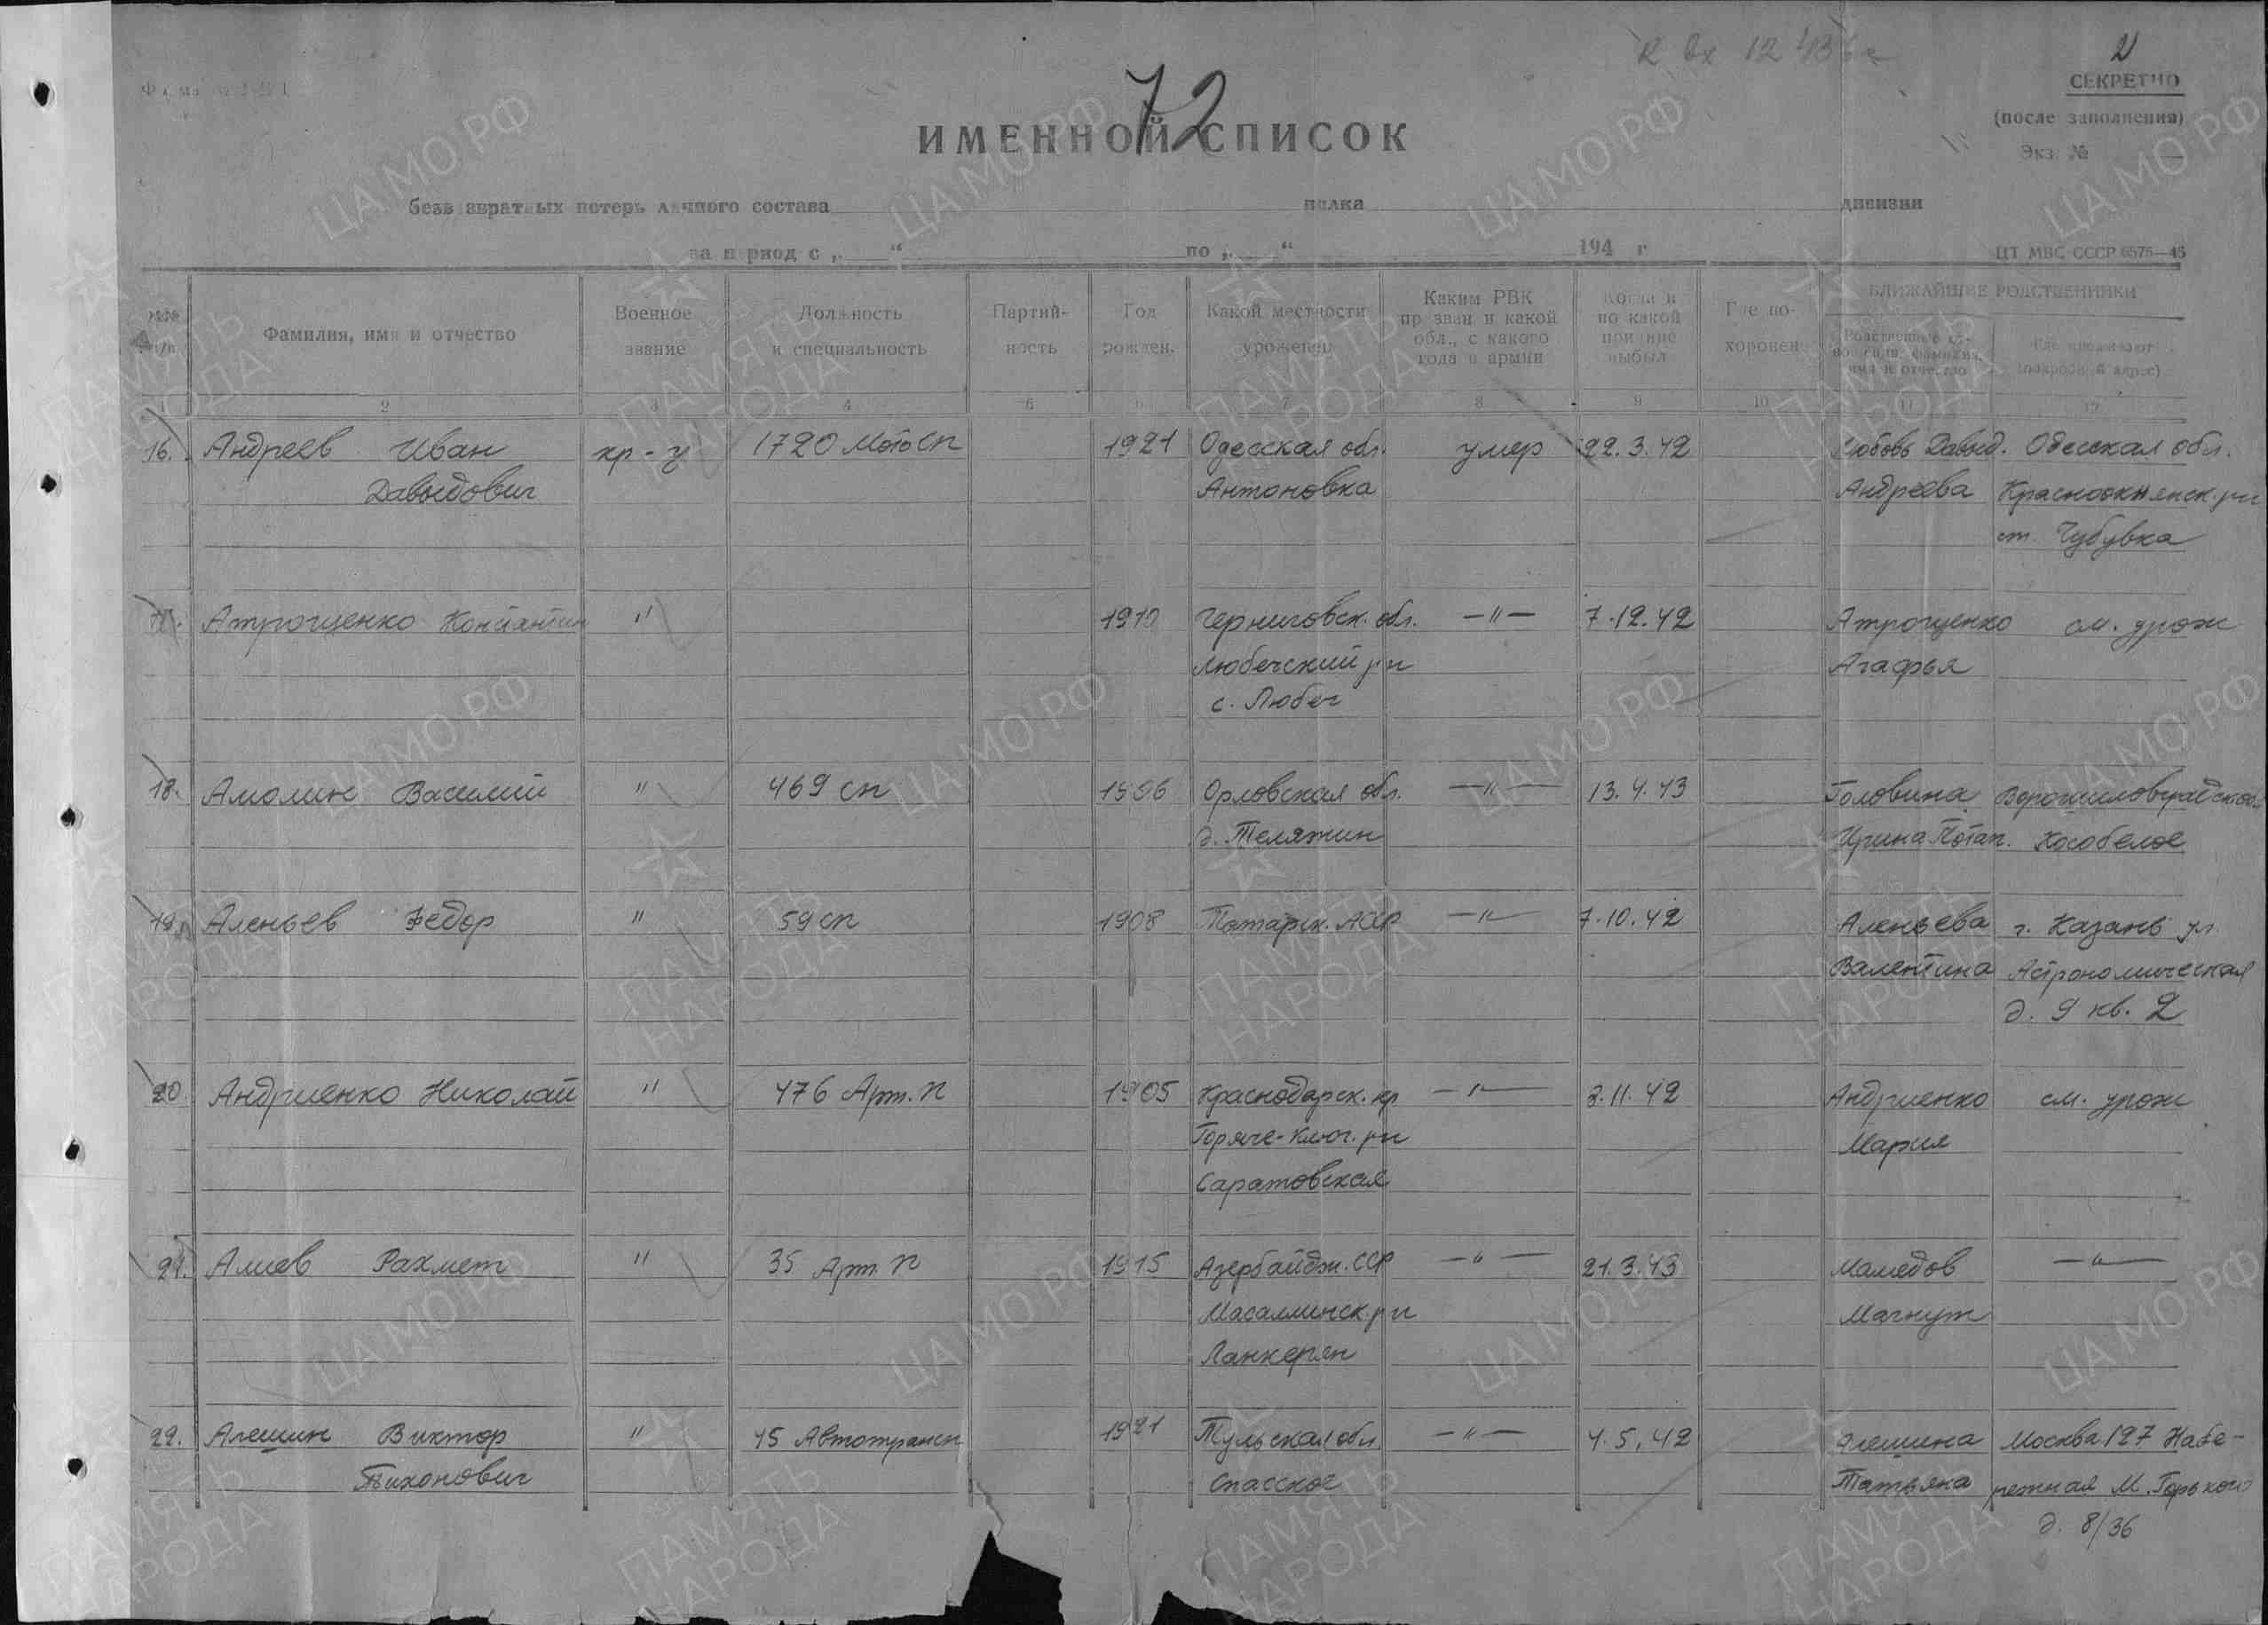 К вх 12
2
СЕКРЕТНО
(после заполнения)
Экз. №
72
ИМЕННОЙ СПИСОК
безвозвратных потерь личного состава полка дивизии
за период с „ “ по „ “ 194 г
ЦТ МВС СССР 6575—45
№№ п/п
Фамилия, имя и отчество
Военное звание
Должность и специальность
Партий-
ность
Год рожден.
Какой местности уроженец
Каким РВК
призван и какой
обл., с какого
года в армии
Когда и
по какой
причине
выбыл
Где по-
хоронен
БЛИЖАЙШИЕ РОДСТВЕННИКИ
Родственные от-
ношения, фамилия,
имя и отчество
Где проживают
(подробный адрес)
2 3 4 5 6 7 8 9 10 11 12
16. Андреев Иван кр-ц 1720 мото сп 1921 Одесская обл. умер 22.3.42 Любовь Давыд. Одесская обл.
Давыдович Антоновка Андреева Красноокнянск. р-н
ст. Чубувка
17. Атрощенко Константин " 1910 Черниговск. обл. —"— 7.12.42 Атрощенко см. урож
Любечский р-н Агафья
с. Любеч
18. Амолин Василий " 469 сп 1906 Орловская обл. —"— 13.4.43 Головина Ворошиловградск. об.
д. Теляжин Ирина Потап. Кособелое
19. Аленьев Федор " 59 сп 1908 Татарск. АССР —"— 7.10.42 Аленьева г. Казань ул
Валентина Астрономическая
д. 9 кв. 2
20 Андриенко Николай " 476 Арт. п 1905 Краснодарск. кр —"— 3.11.42 Андриенко см. урож
Горяче-Ключ. р-н Мария
Саратовская
21. Алиев Рахмет " 35 Арт. п 1915 Азербайдж. ССР —"— 21.3.43 Мамедов —"—
Масаллинск. р-н Магнут
Ланкерян
22. Алешин Виктор " 45 Автотрансп 1921 Тульская обл. —"— 4.5.42 Алешина Москва 127 Набе-
Тихонович Спасское Татьяна режная М. Горького
д. 8/36
ЦАМО РФ
ПАМЯТЬ
НАРОДА